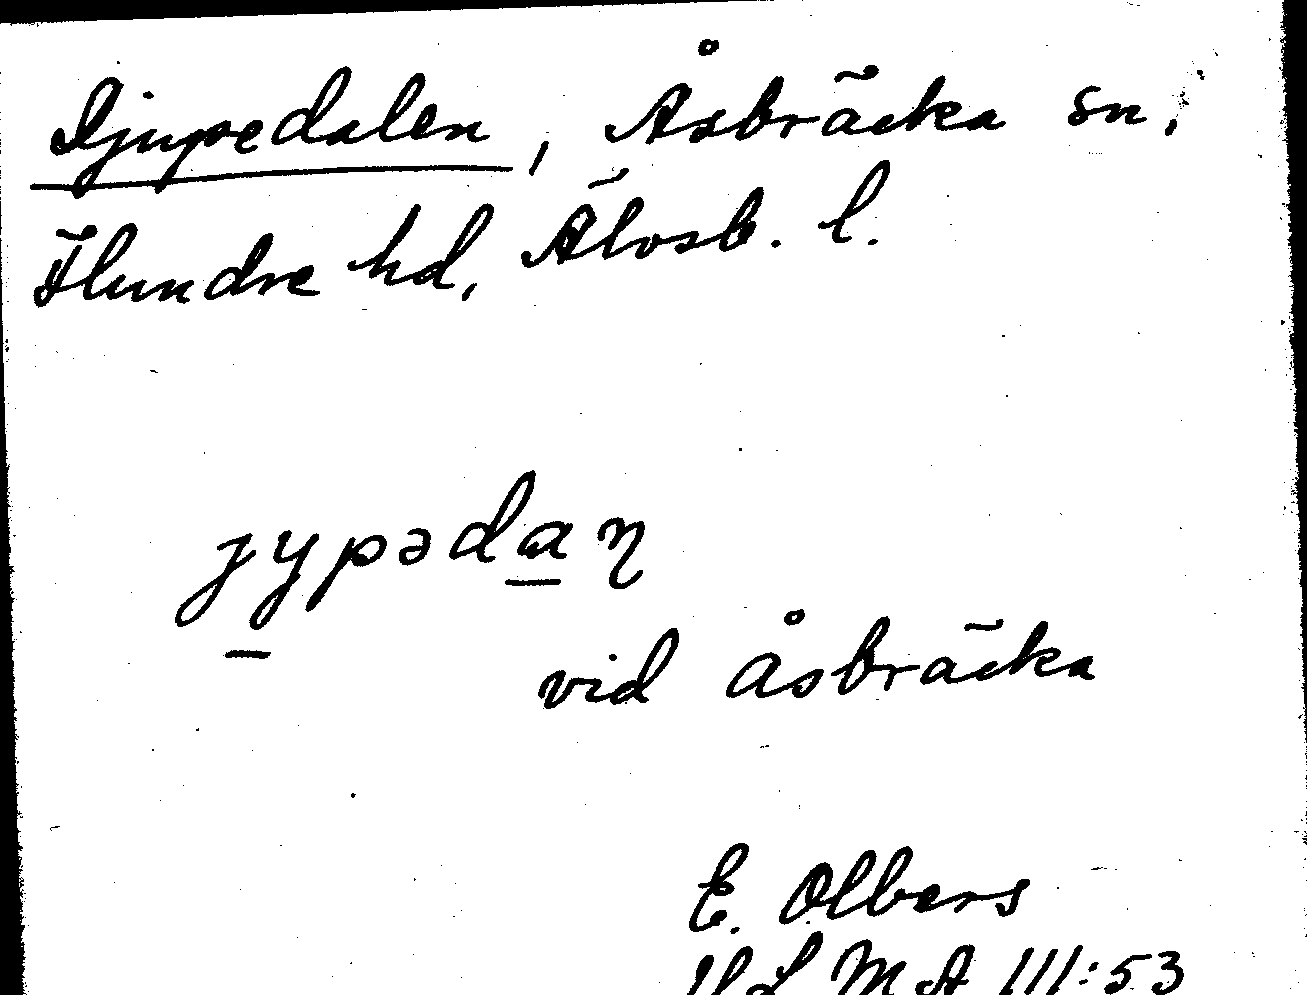 Djupedalen, Åsbräcka sn,
Flundre hd, Älvsb. l.
jypədaɳ
vid Åsbräcka
E. Olbers
MA III:53